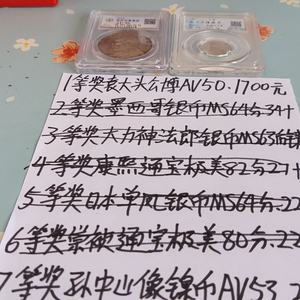 1等奖袁大头公博AV50.1700元
2等奖墨西哥银币MS64分34+
3等奖大力神法郎银币MS63
4等奖康熙通宝极美82分21+
5等奖日本单凤银币MS64分.22
6等奖崇祯通宝极美80分.22
7等奖孙中山像镍币AV53